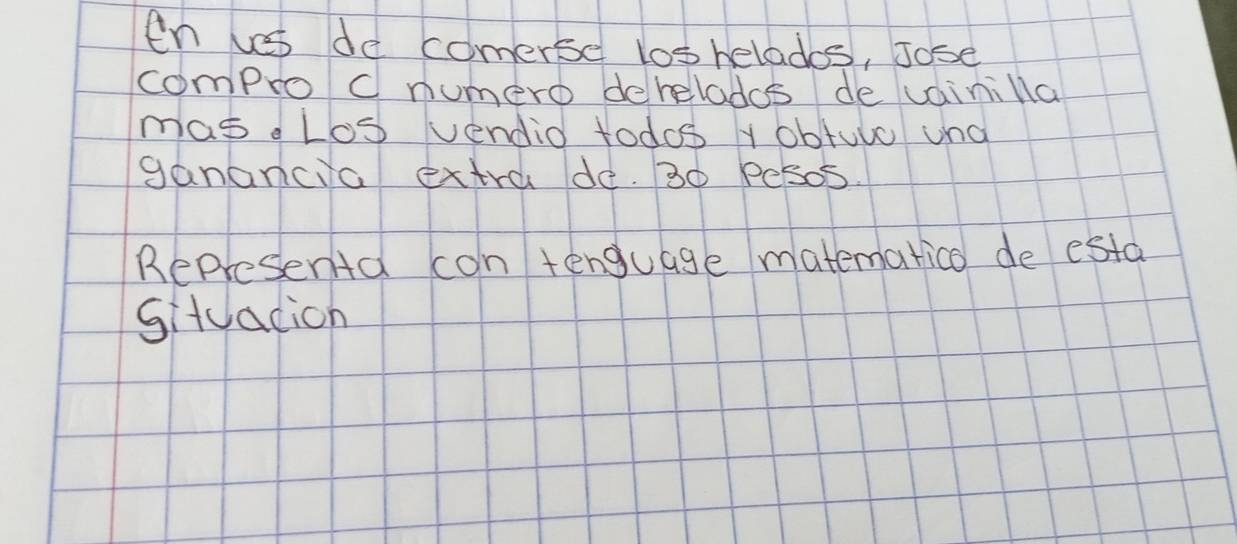 En ves de comerse los helados, Jose
compro c numero de helados de vainilla
mas. Los vendio todos y obtuvo una
ganancia extra de. 30 pesos.
Representa con tenguage matematico de esta
situacion